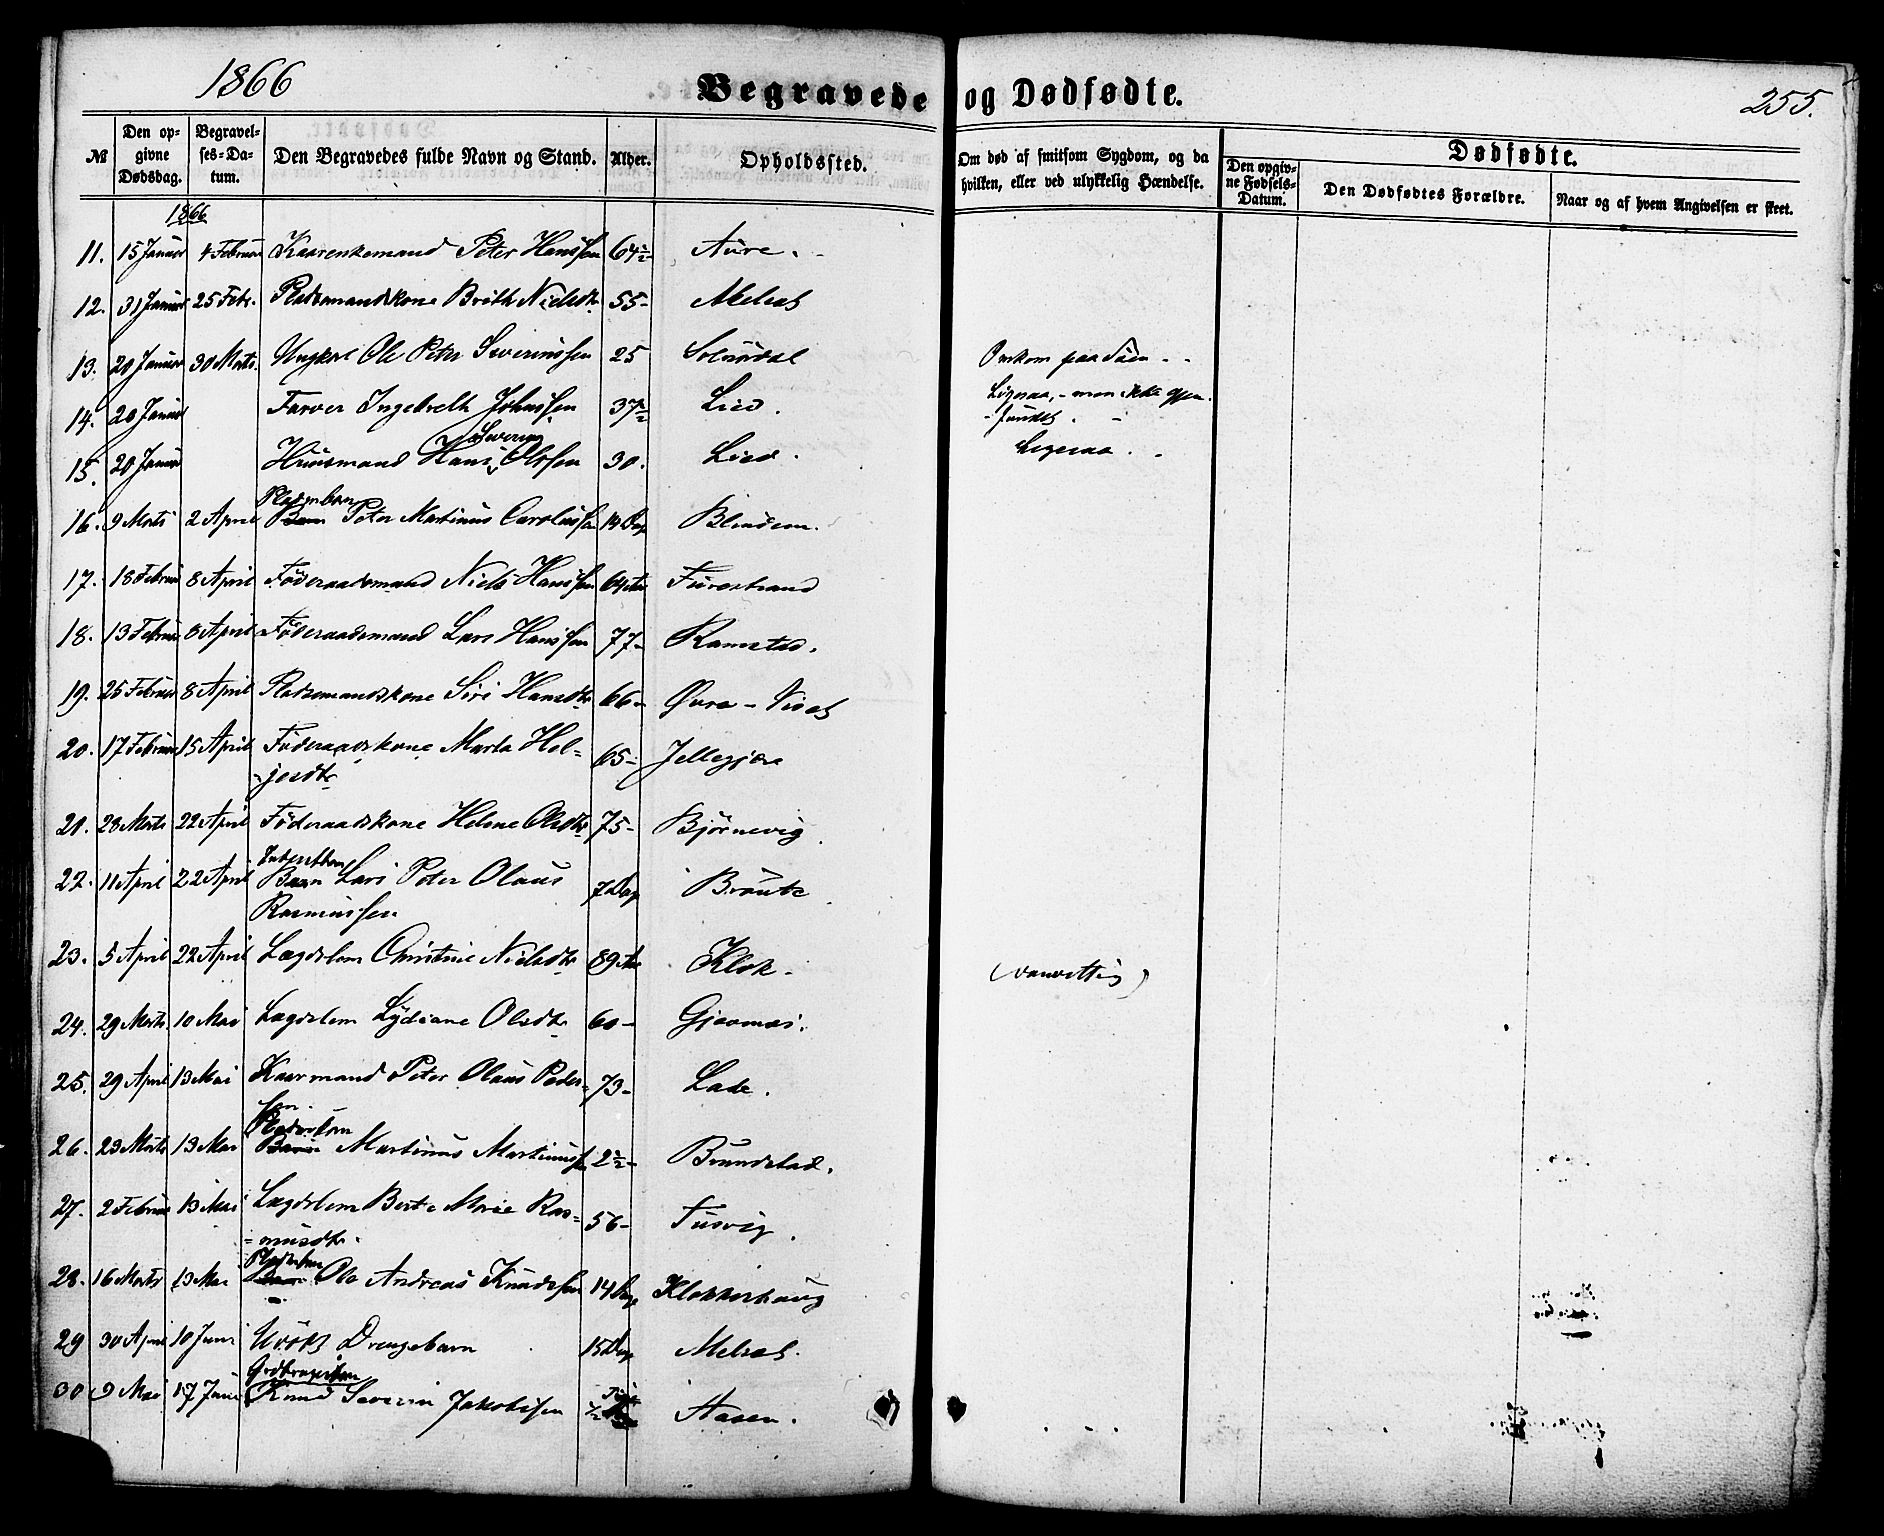 1866
Begravede og Dødfødte.
255.
№
Den opgivne Dødsdag.
Begravelses-Datum.
Den Begravedes fulde Navn og Stand.
Alder.
Opholdssted.
Om død af smitsom Sygdom, og da hvilken, eller ved ulykkelig Hændelse.
Dødfødte.
Den opgivne Fødsels-Datum.
Den Dødfødtes Forældre.
Naar og af hvem Angivelsen er skeet.
1866
11. 15 Januar 4 Februar Kaarenkemand Peter Hanssen 64½ Aure.
12. 31 Januar 25 Febr. Pladsmandskone Brith Nielsdtr 55- Melset
13. 20 Januar 30 Marts. Ungkarl Ole Peter Severinssen 25 Solnørdal Omkom paa Søen
14. 20 Januar Farver Ingebrelt Johnssen 37½ Lied. Ligesaa, - men ikke gjen-
fundet.
Severin
15. 20 Januar Huusmand Hans Olssen 30. Lied. Ligesaa
Pladsebarn
16. 9 Marts 2 April Barn Peter Martinus Carolussen 14 Dag Blindem.
17. 18 Februar 8 April Føderaadsmand Niels Hanssen 64 Aar Furestrand
18. 13 Februar 8 April Føderaadsmand Lars Hanssen 77- Ramstad.
19. 25 Februar 8 April Pladsmandskone Siri Hansdtr 66- Øvre-Viset
20. 17 Februar 15 April Føderaadskone Marta Hel-
jesdtr 65- Jellegjære
21. 28 Marts 22 April Føderaadskone Helene Olsdtr 75- Bjørnevig
22. 11 April 22 April Barn Lars Peter Olaus
Rasmussen 7 Dag Braute
23. 5 April 22 April Lægdslem Christine Nielsdtr 89 Aar Klok. (vanvittig)
24. 29 Marts 10 Mai Lægdslem Lydiane Olsdtr 60-
25. 29 April 13 Mai Kaarmand Peter Olaus Peder-
sen. 73- Lade.
26. 23 Marts 13 Mai Barn Martinus Martinussen 2½- Brundstad.
27. 2 Februar 13 Mai Lægdslem Berte Marie Ras-
musdtr. 56- Tusvig.
Pladsebarn
28. 16 Marts 13 Mai Barn Ole Andreas Knudssen 14 Dage Klokkerhaug
29 30 April 10 Juni Udøbt Drengebarn 15 Dag Melset.
30 9 Mai 17 Juni Knud Severin Jakobssen ½ Aasen.